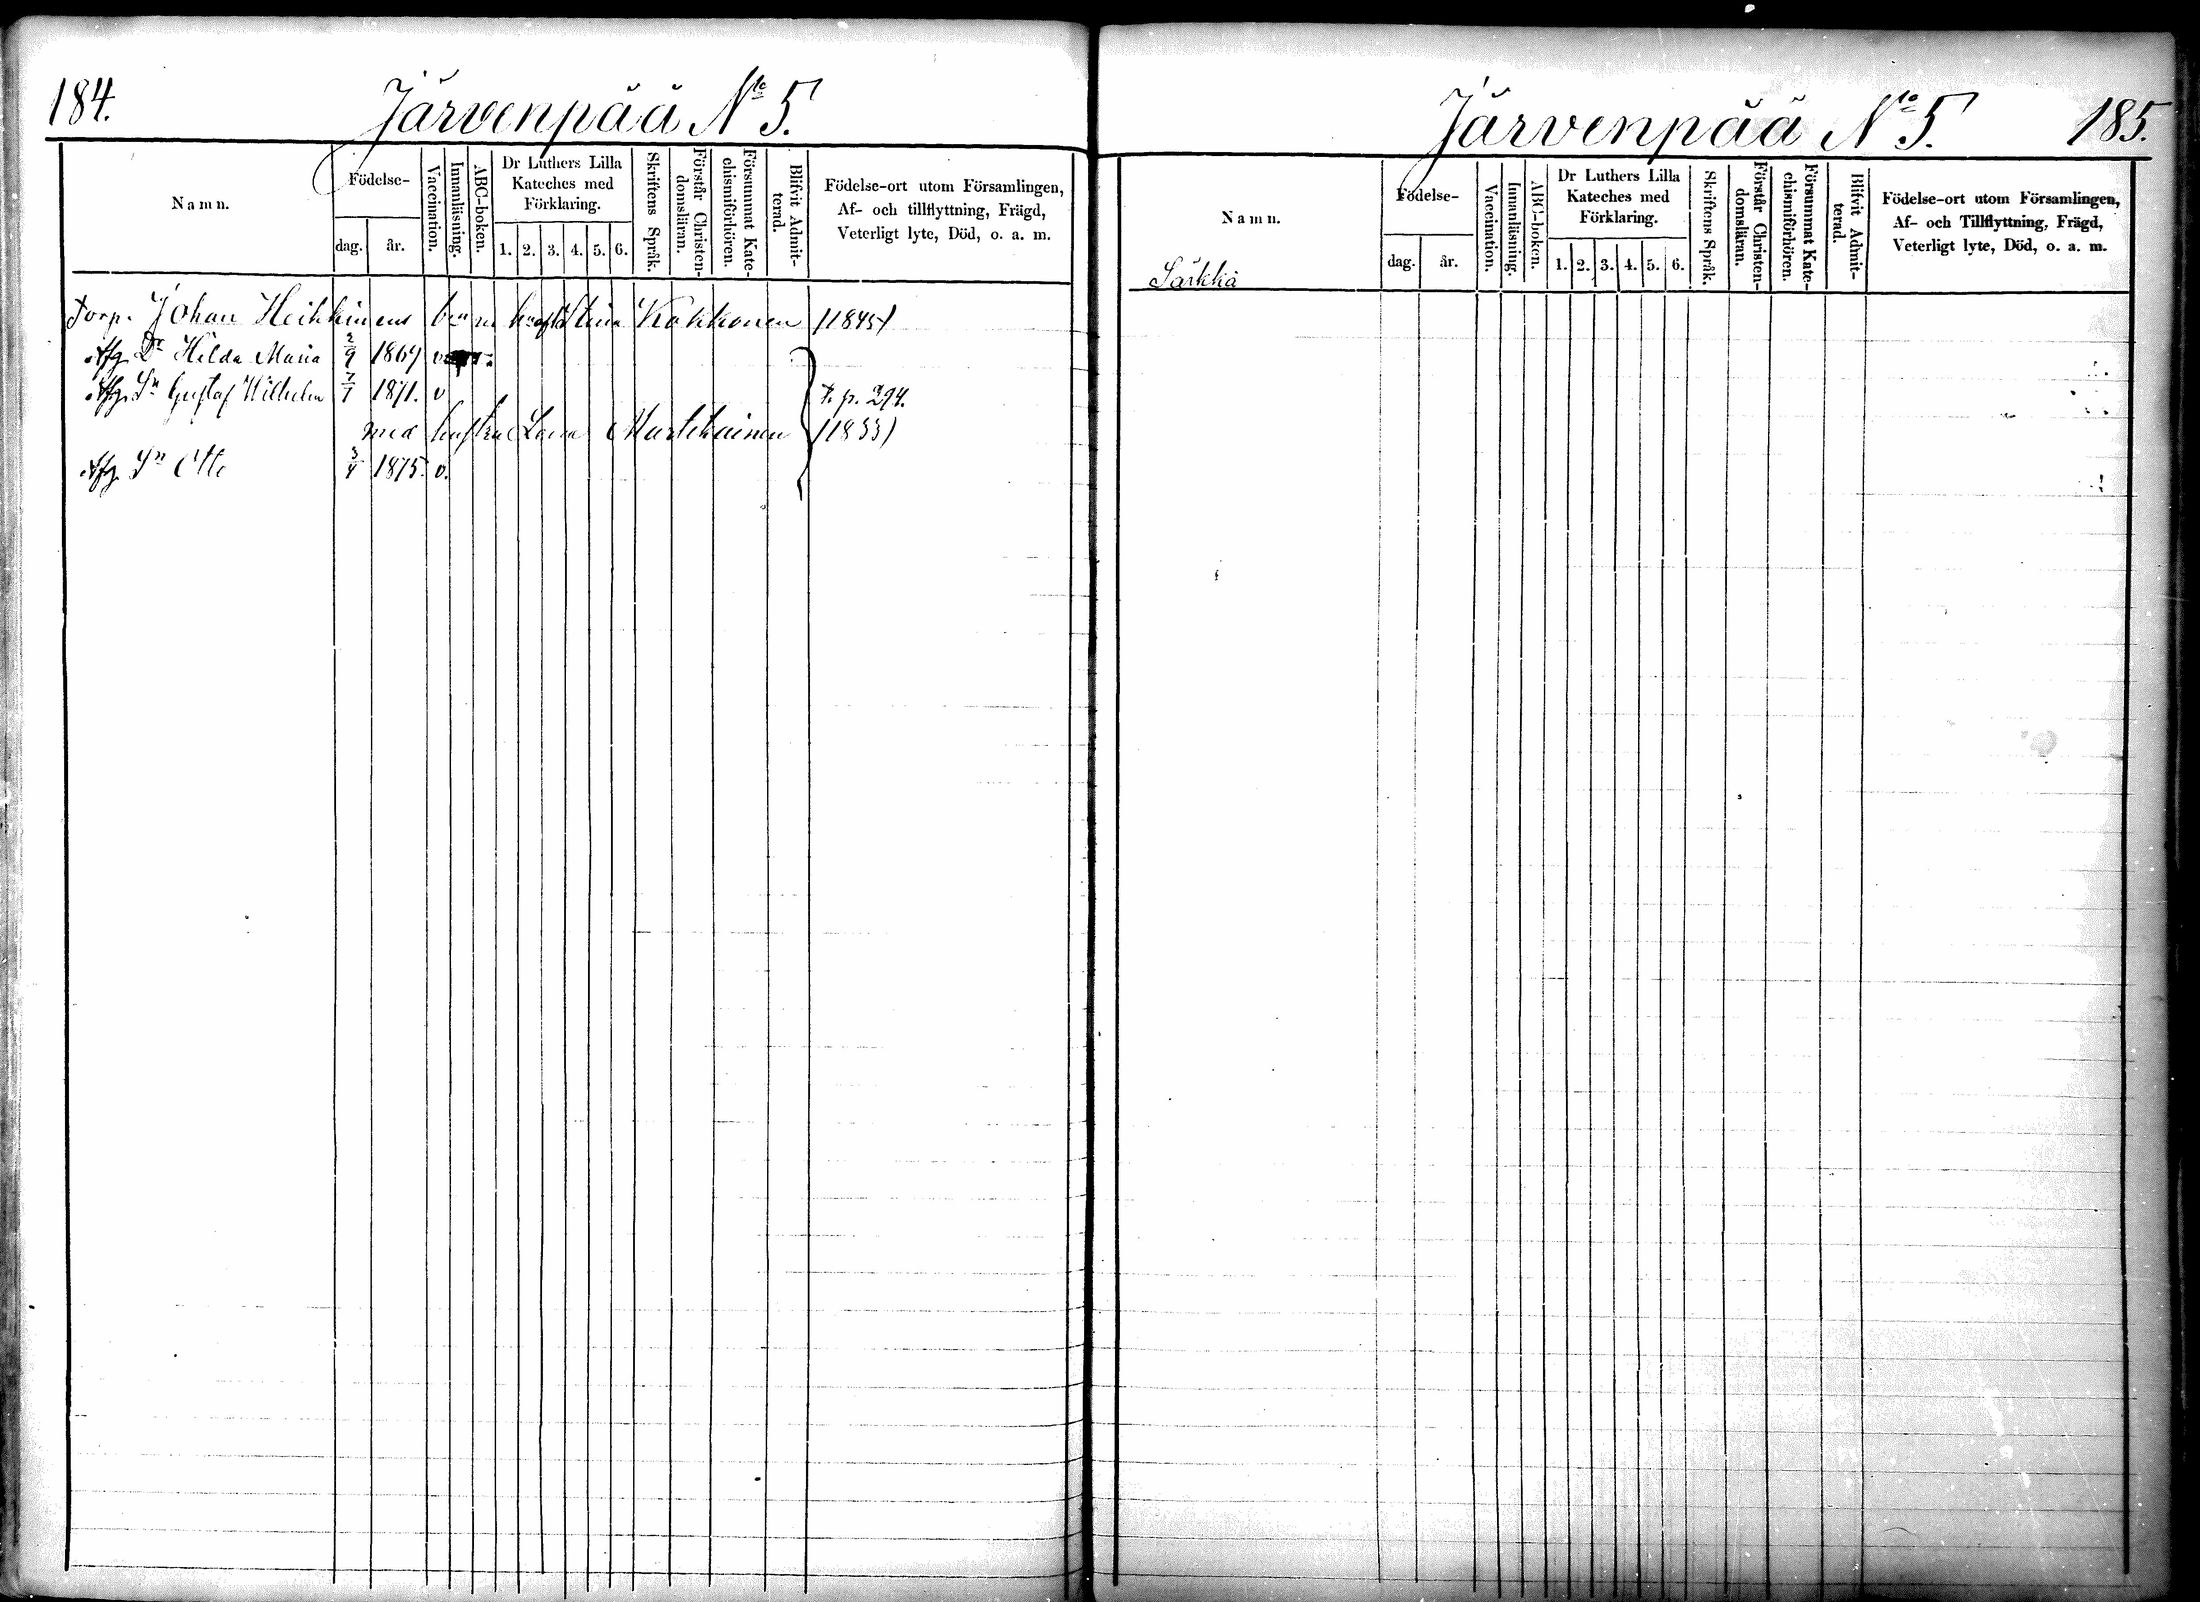 184.
Järvenpää No 5.
Namn.
Födelse-
dag.
år.
Vaccination.
Innanläsning.
ABC-boken.
Dr Luthers Lilla
Kateches med
Förklaring.
1. 2. 3. 4. 5. 6.
Skriftens Språk.
Förstår Christen-
domsläran.
Försummat Kate-
chismiförhören.
Blifvit Admit-
terad.
Födelse-ort utom Församlingen,
Af- och tillflyttning, Frägd,
Veterligt lyte, Död, o. a. m.
Torp. Johan Heikkinens barn Stina Kokkonen
Afg. Dr Hilda Maria 2/9 1869 v
Afg. Sn Gustaf Wilhelm 7/7 1871. v t. p. 294.
med hustru Lova (1833)
Afg. Sn Otto 3/4 1875. v.
Järvenpää No 5.
185.
Namn.
Särkkä
Födelse-
dag.
år.
Vaccination.
Innanläsning.
ABC-boken.
Dr Luthers Lilla
Kateches med
Förklaring.
1. 2. 3. 4. 5. 6.
Skriftens Språk.
Förstår Christen-
domsläran.
Försummat Kate-
chismiförhören.
Blifvit Admit-
terad.
Födelse-ort utom Församlingen,
Af- och Tillflyttning, Frägd,
Veterligt lyte, Död, o. a. m.